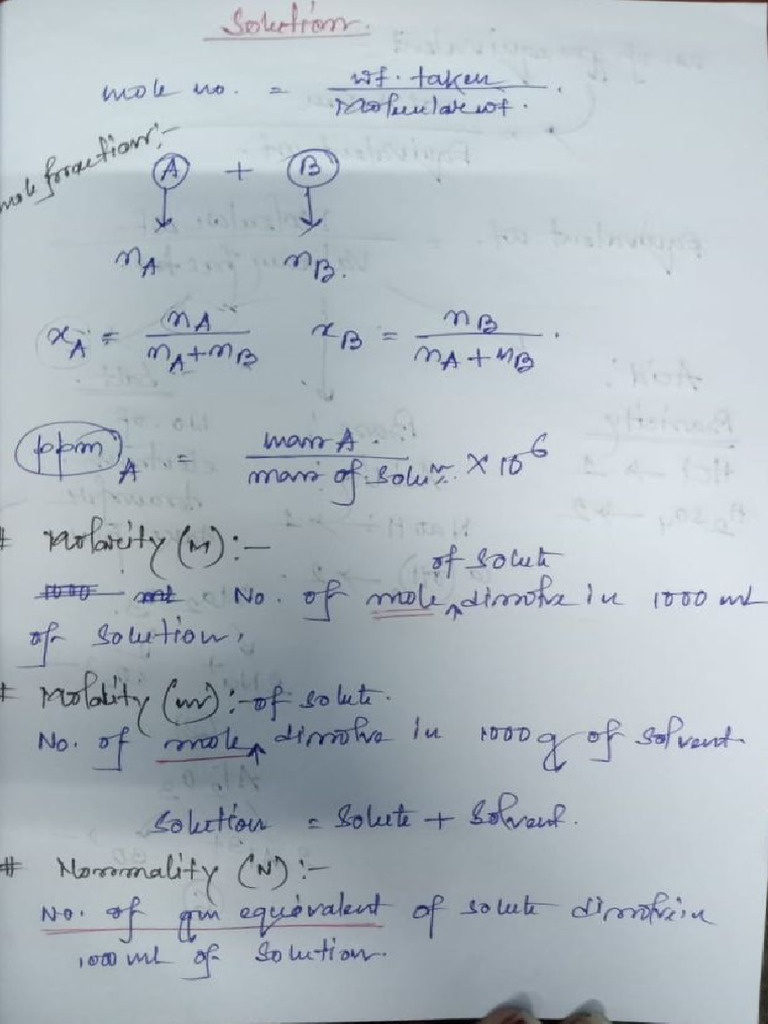 Solution.
mole no. = wt. taken / Molecular wt.
mole fraction:-
A + B
nA nB.
xA = nA / nA+nB xB = nB / nA+nB.
ppm A = mass A. / mass of solun. × 10^6
# Molarity (M):-
of solute
No. of mole dissolve in 1000 mL
of solution.
# Molality (m):- of solute.
No. of mole dissolve in 1000 g of solvent.
Solution = Solute + Solvent.
# Normality (N):-
No. of gm equivalent of solute dissolve in
1000 mL of solution.